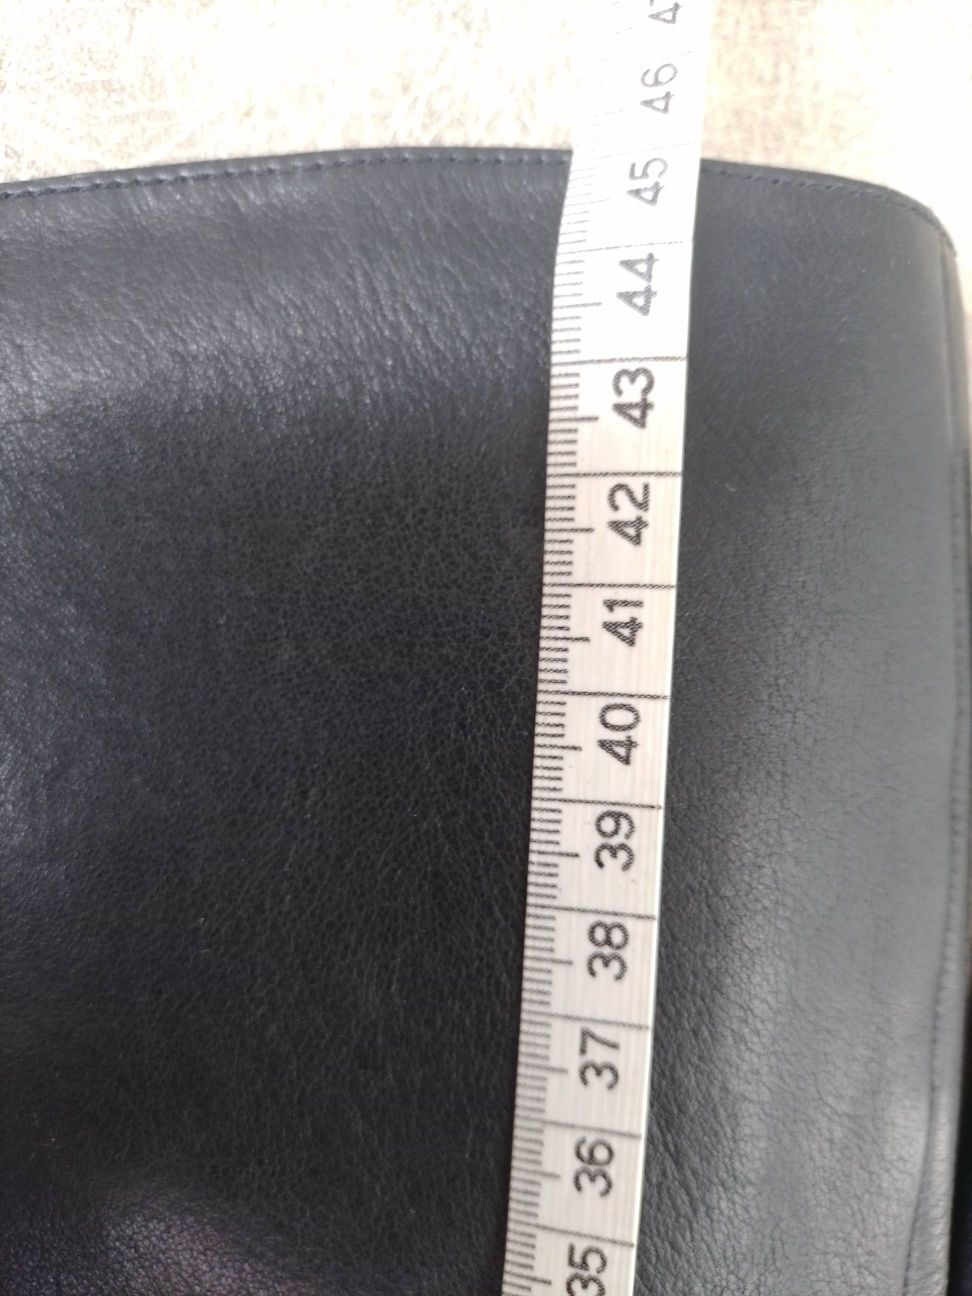 46
45
44
43
42
41
40
39
38
37
36
35